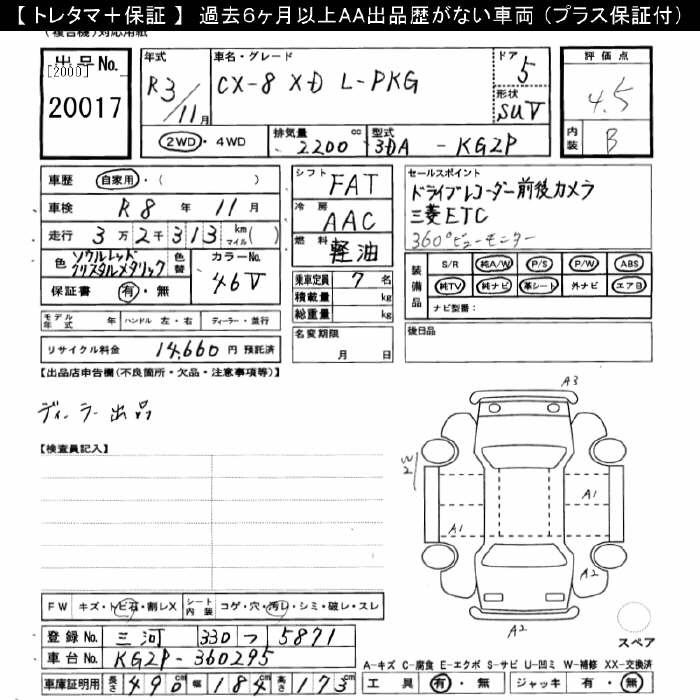 【トレタマ＋保証】 過去6ヶ月以上AA出品歴がない車両（プラス保証付）
（複合機）対応用紙
出品No.
[2000]
20017
年式
R3/11月
車名・グレード
CX-8 XD L-PKG
ドア
5
形状
SUV
2WD・4WD
排気量
2200 cc
型式
3DA - KG2P
評価点
4.5
内装
B
車歴 自家用・( )
車検 R8 年 11 月
走行 3万2千313 km(マイル)( )
色 ソウルレッドクリスタルメタリック 色替
カラーNo. 46V
保証書 有・無
シフト FAT
冷房 AAC
燃料 軽油
乗車定員 7 名
積載量 kg
総重量 kg
名変期限
月 日
セールスポイント
ドライブレコーダー前後カメラ
三菱ETC
360°ビューモニター
装備品
S/R 純A/W P/S P/W ABS
純TV 純ナビ 革シート 外ナビ エアB
ナビ型番：
後日品
モデル年式 年 ハンドル 左・右 ディーラー・並行
リサイクル料金 14,660 円 預託済
【出品店申告欄(不良箇所・欠品・注意事項等)】
ディーラー出品
【検査員記入】
A3
W2
A1
A1
A2
A2
スペア
FW キズ・トビ石・割レX シート内装 コゲ・穴・汚レ・シミ・破レ・スレ
登録No. 三河 330 つ 5871
車台No. KG2P-360295
車庫証明用 長さ 490cm 幅 184cm 高さ 173cm
A-キズ C-腐食 E-エクボ S-サビ U-凹ミ W-補修 XX-交換済
工具 有・無 ジャッキ 有・無